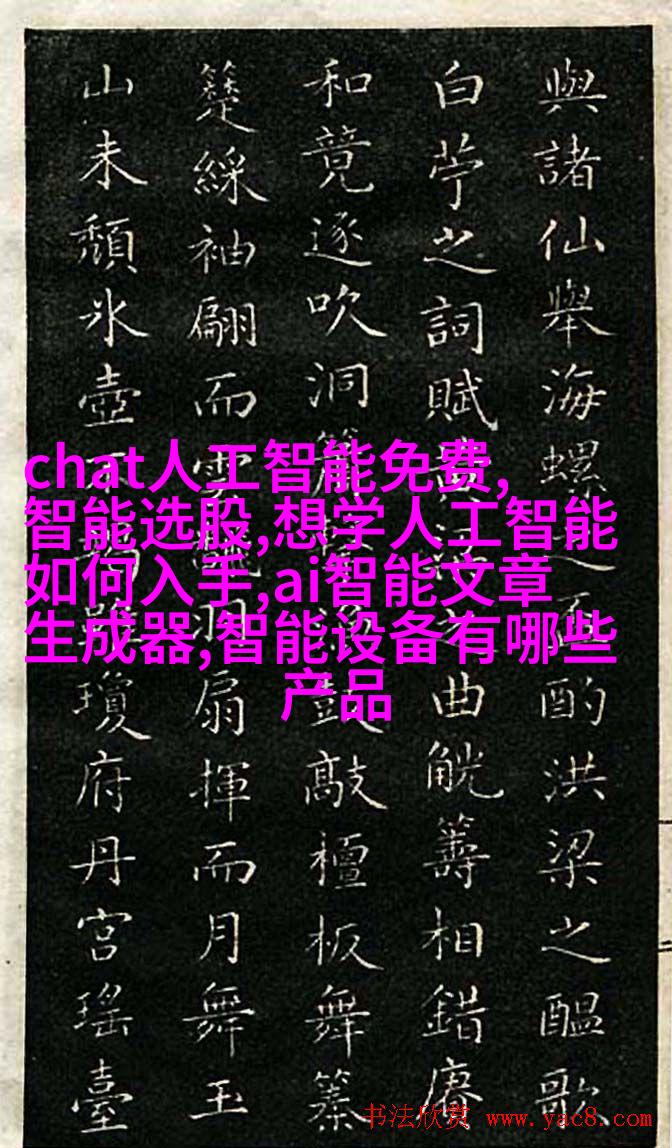 與諸仙舉海螺之酌洪梁之醞歌
白苧之詞賦曲觥籌相錯賡
和竟逐吹洞簫鼓敲檀板舞
綵袖翩而雲羽扇揮而月舞玉
山未頹氷壺不瓊府丹宮瑤臺
chat人工智能免费,
智能选股,想学人工智能
如何入手,ai智能文章
生成器,智能设备有哪些
产品
书法欣赏 www.yac8.com